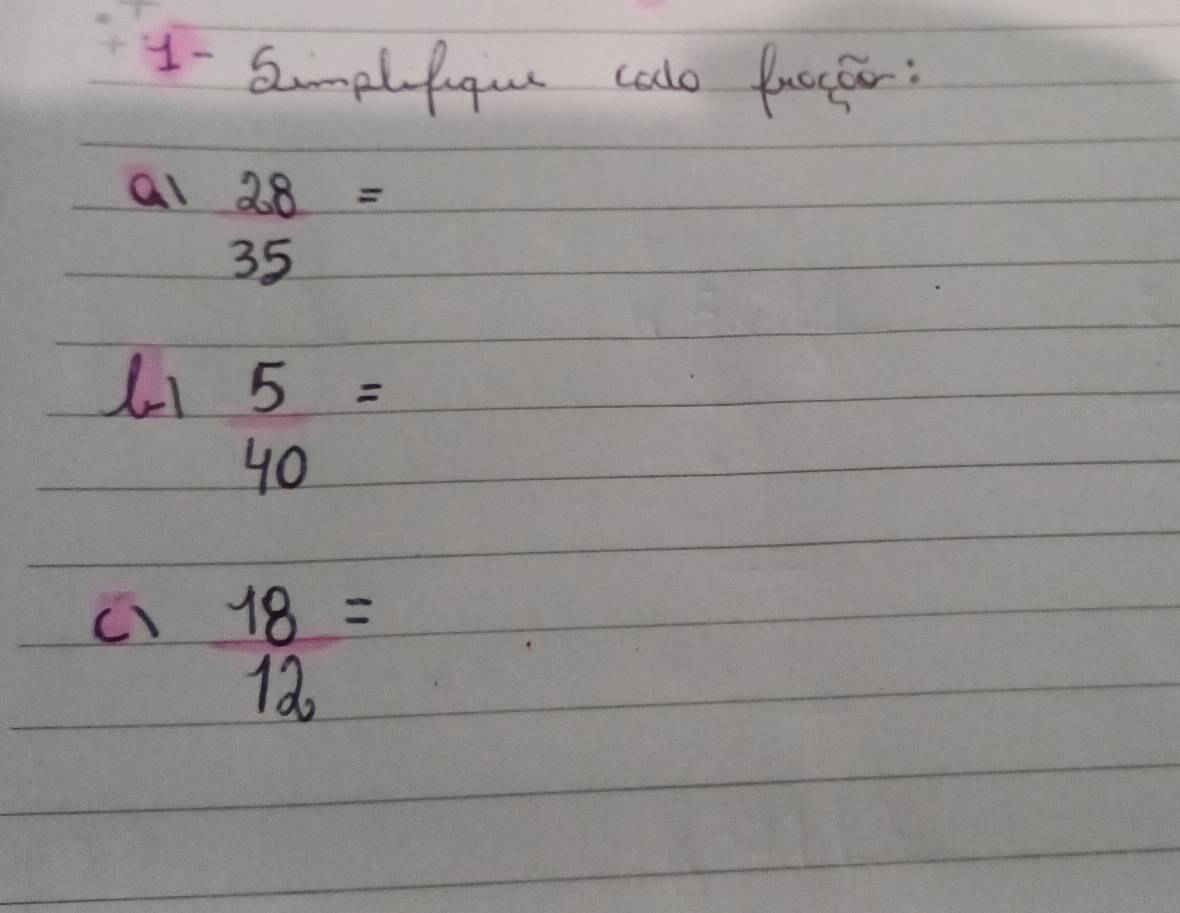 1- Simplifique cada fração:
a) 28 =
35
b) 5 =
40
c) 18 =
12